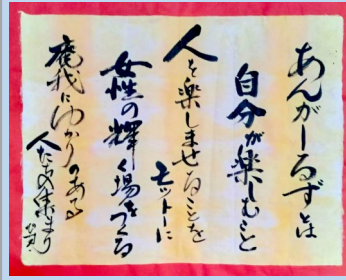 あんがーるずとは
自分が楽しむこと
人を楽しませることを
モットーに
女性の輝く場をつくる
庵我にゆかりのある
人たちの集まり